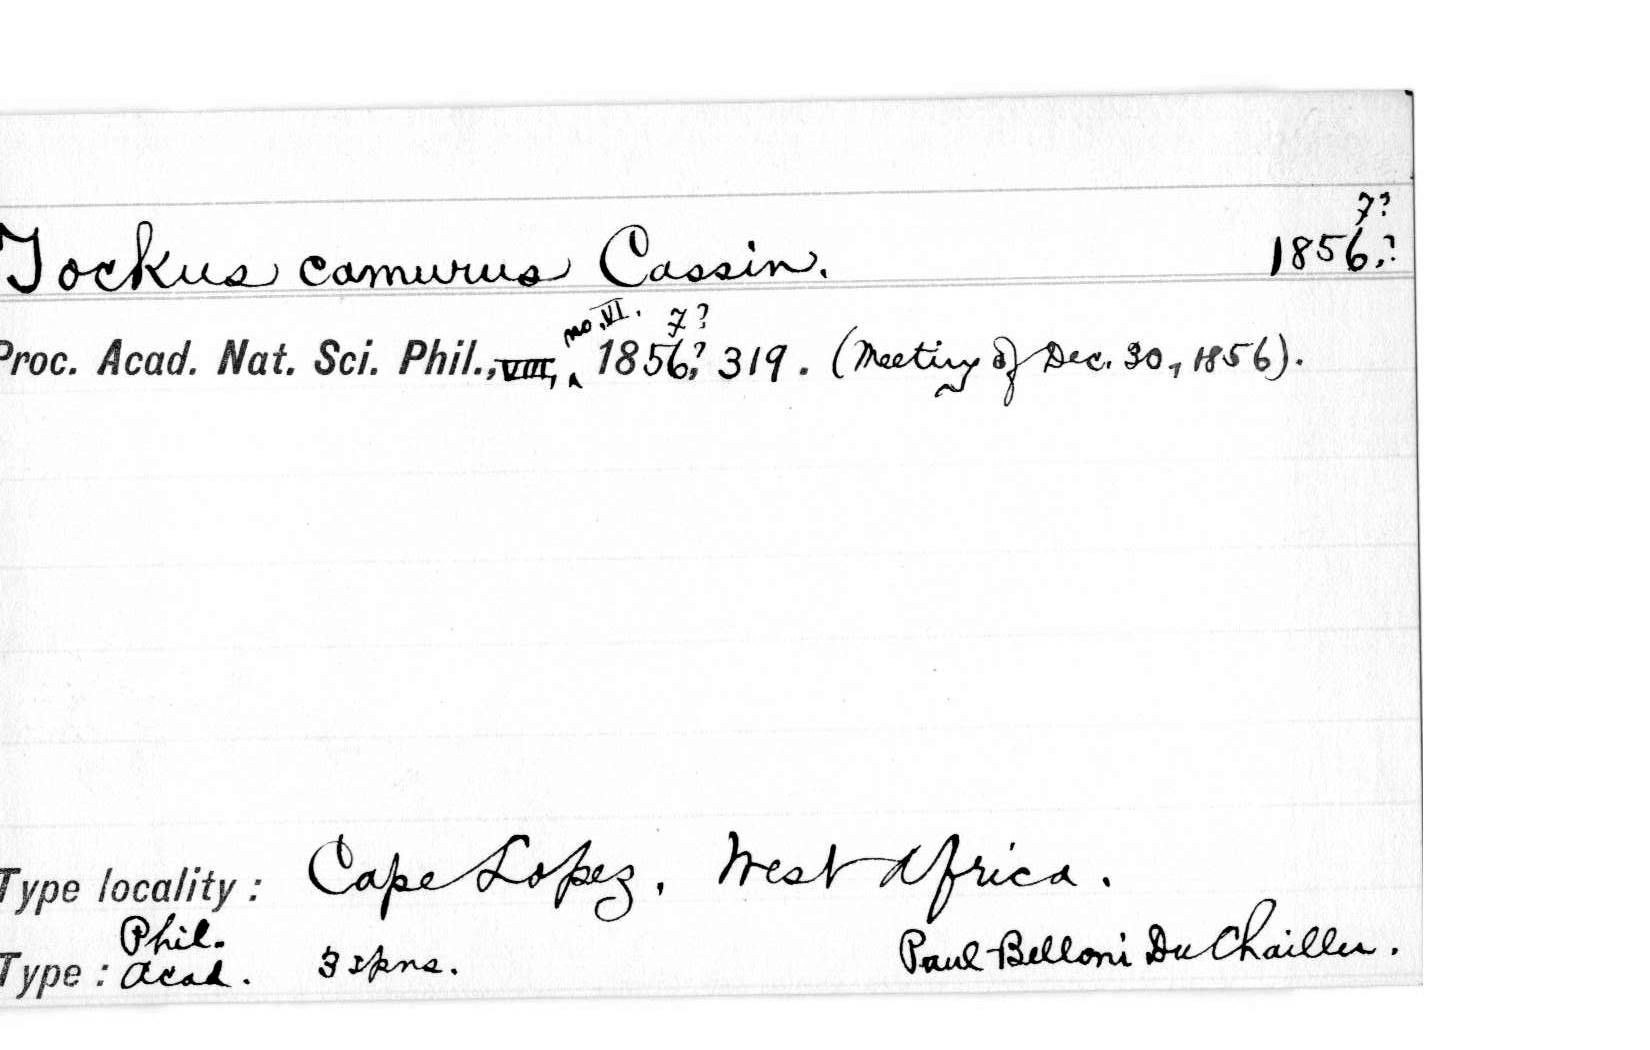 7?
Tockus camurus Cassin. 1856,?
no. VI. 7?
Proc. Acad. Nat. Sci. Phil., VIII, ^ 1856,? 319. (Meeting of Dec. 30, 1856).
Type locality: Cape Lopez, West Africa.
Phil.
Type: Acad. 3 spns. Paul Belloni Du Chaillu.